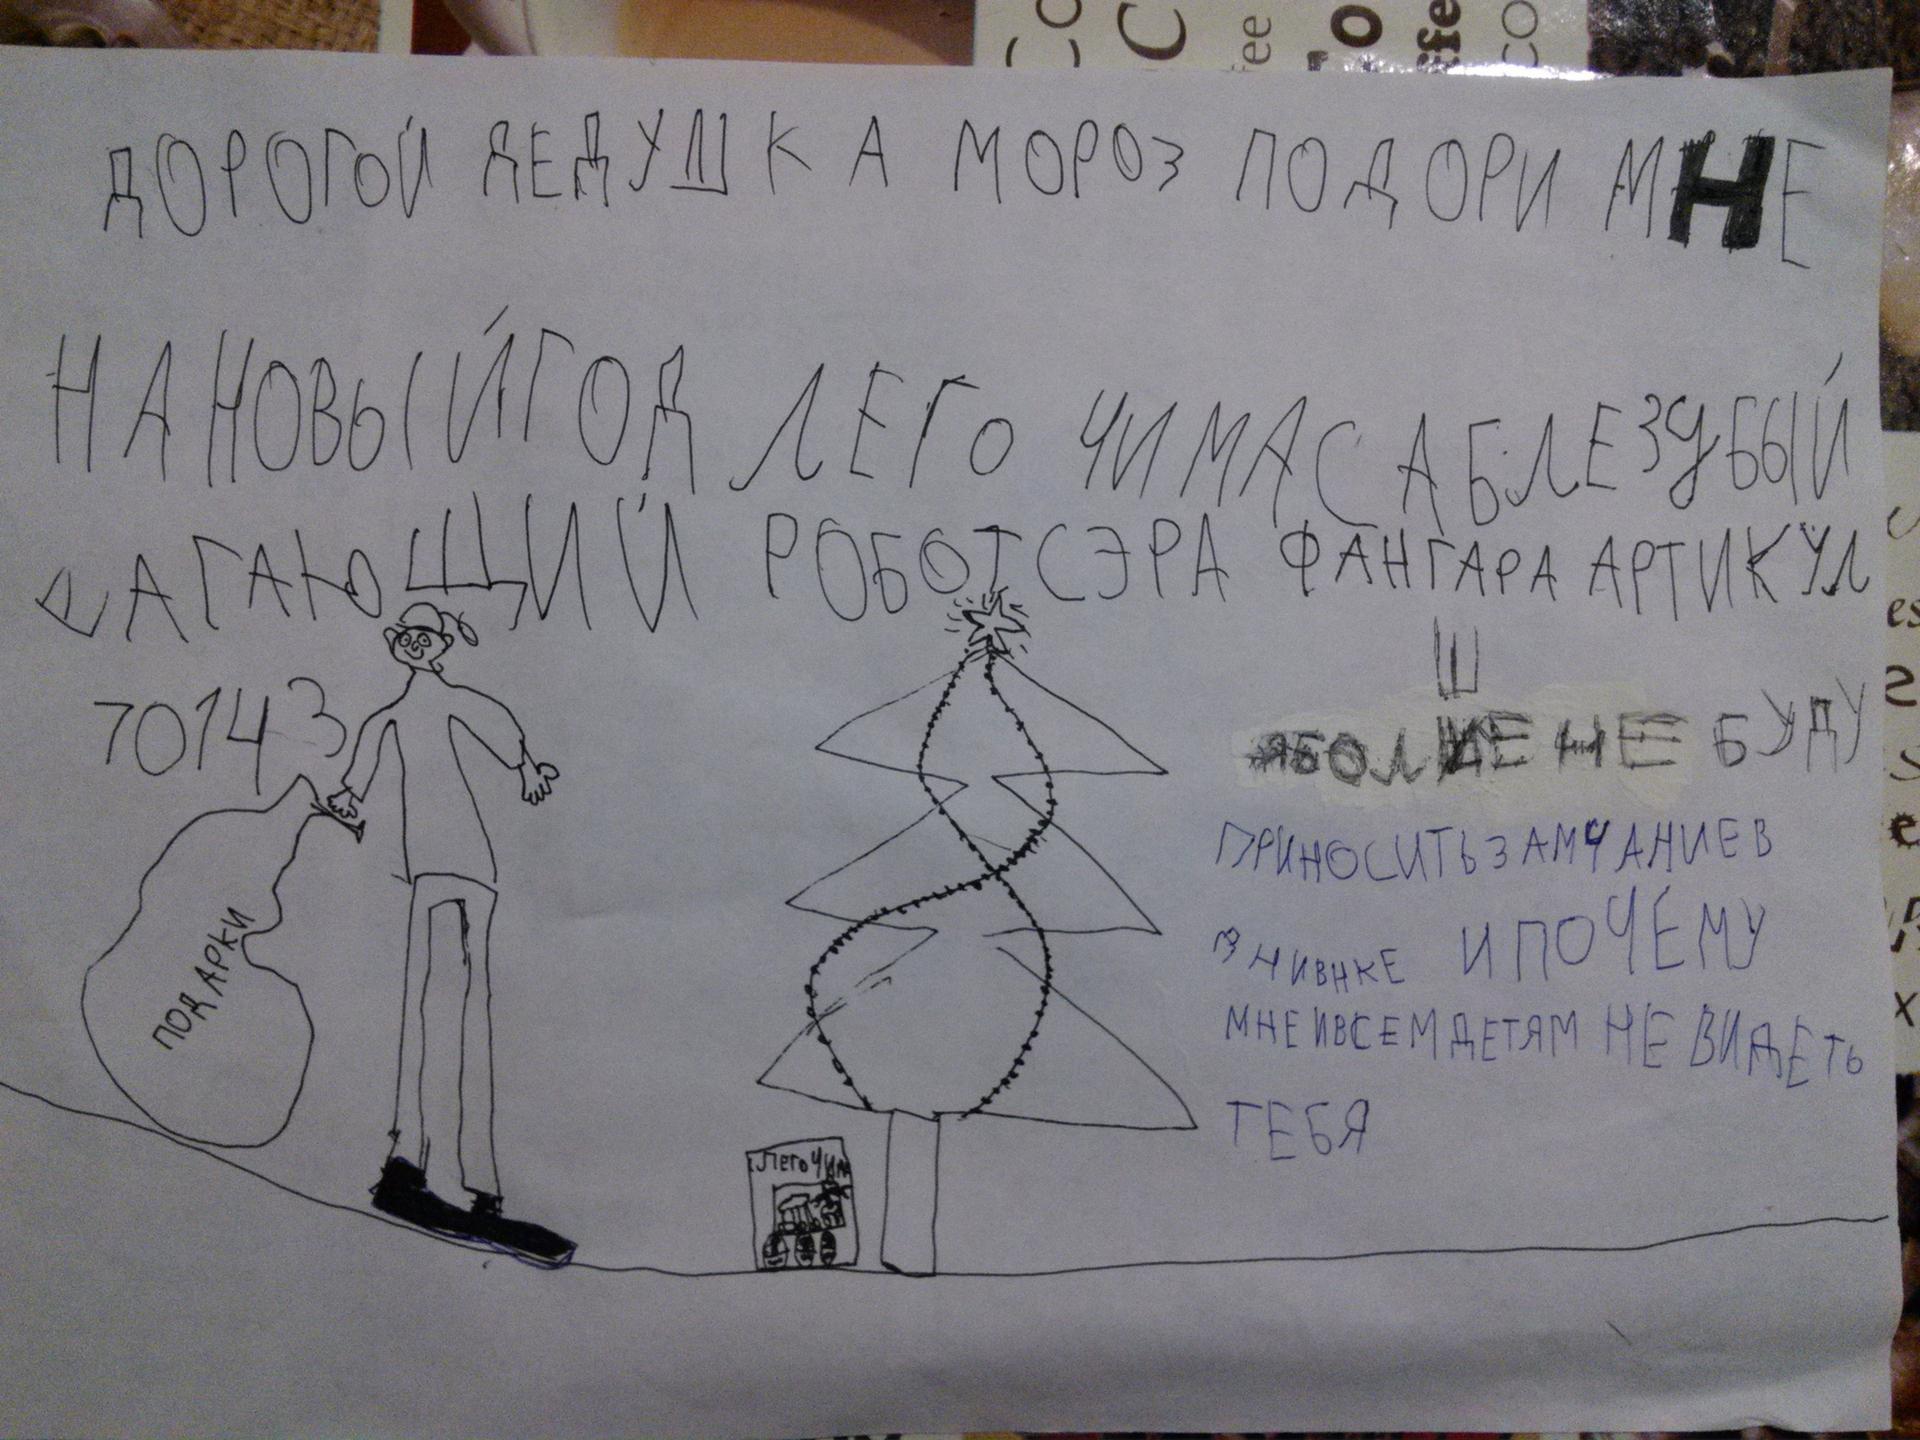 ДОРОГОЙ ДЕДУШКА МОРОЗ ПОДОРИ МНЕ
НА НОВЫЙ ГОД ЛЕГО ЧИМА САБЛЕЗУБЫЙ
ШАГАЮЩИЙ РОБОТ СЭРА ФАНГАРА АРТИКУЛ
70143
Ш
Я БОЛШЕ НЕ БУДУ
ПРИНОСИТЬ ЗАМЧАНИЕ В
И ПОЧЕМУ
МНЕ И ВСЕМ ДЕТЯМ НЕ ВИДЕТЬ
ТЕБЯ
ПОДАРКИ
Лего ЧИМА